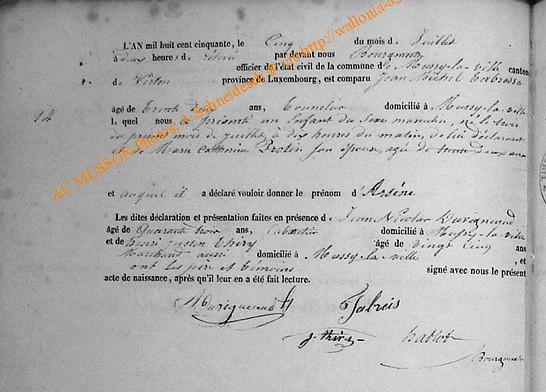 L'AN mil huit cent cinquante, le Cinq du mois de Juillet
à deux heures de relevée par devant nous Bourgmestre
officier de l'état civil de la commune de Mussy-la-ville canton
de Virton province de Luxembourg, est comparu Jean Michel
14
âgé de trente ans, Tonnelier domicilié à Mussy-la-ville
lequel nous a présenté un Enfant du Sexe masculin, né le trois
du présent mois de juillet, à dix heures du matin, de lui déclarant
et de Marie Catherine son épouse, agée de trente deux ans
et auquel il a déclaré vouloir donner le prénom d'Arsène
Les dites déclaration et présentation faites en présence de Jean Nicolas
âgé de Quarante trois ans, domicilié à Mussy-la-ville
et de Henri Thiry âgé de vingt cinq ans
aussi domicilié à Mussy-la-ville , et
ont les père et témoins signé avec nous le présent
acte de naissance, après qu'il leur en a été fait lecture.
Bourgmestre
AC MUSSON Photos: A. Schneider http://wallonia-as